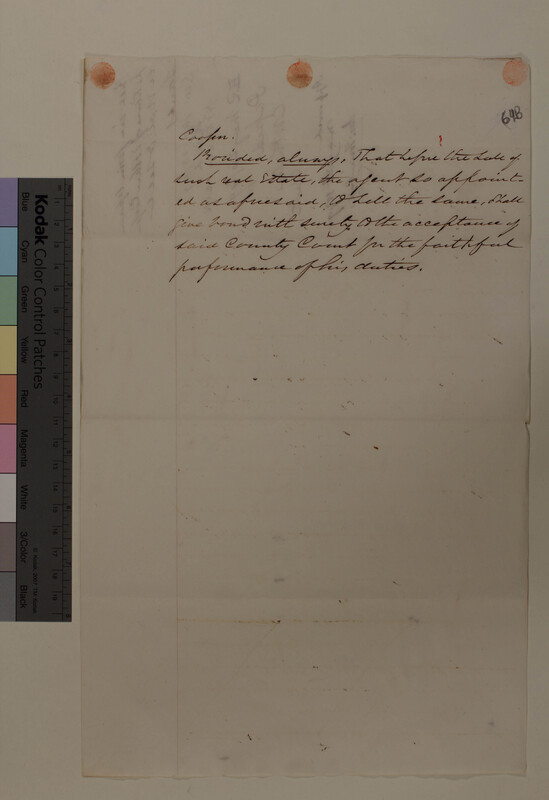 698
Cooper.
Provided, always, That before the Sale of
such real Estate, the agent so appoint-
ed as aforesaid, to sell the same, shall
give bond with surety to the acceptance of
said County Court for the faithful
performance of his, duties.
Kodak Color Control Patches
Blue
Cyan
Green
Yellow
Red
Magenta
White
3/Color
Black